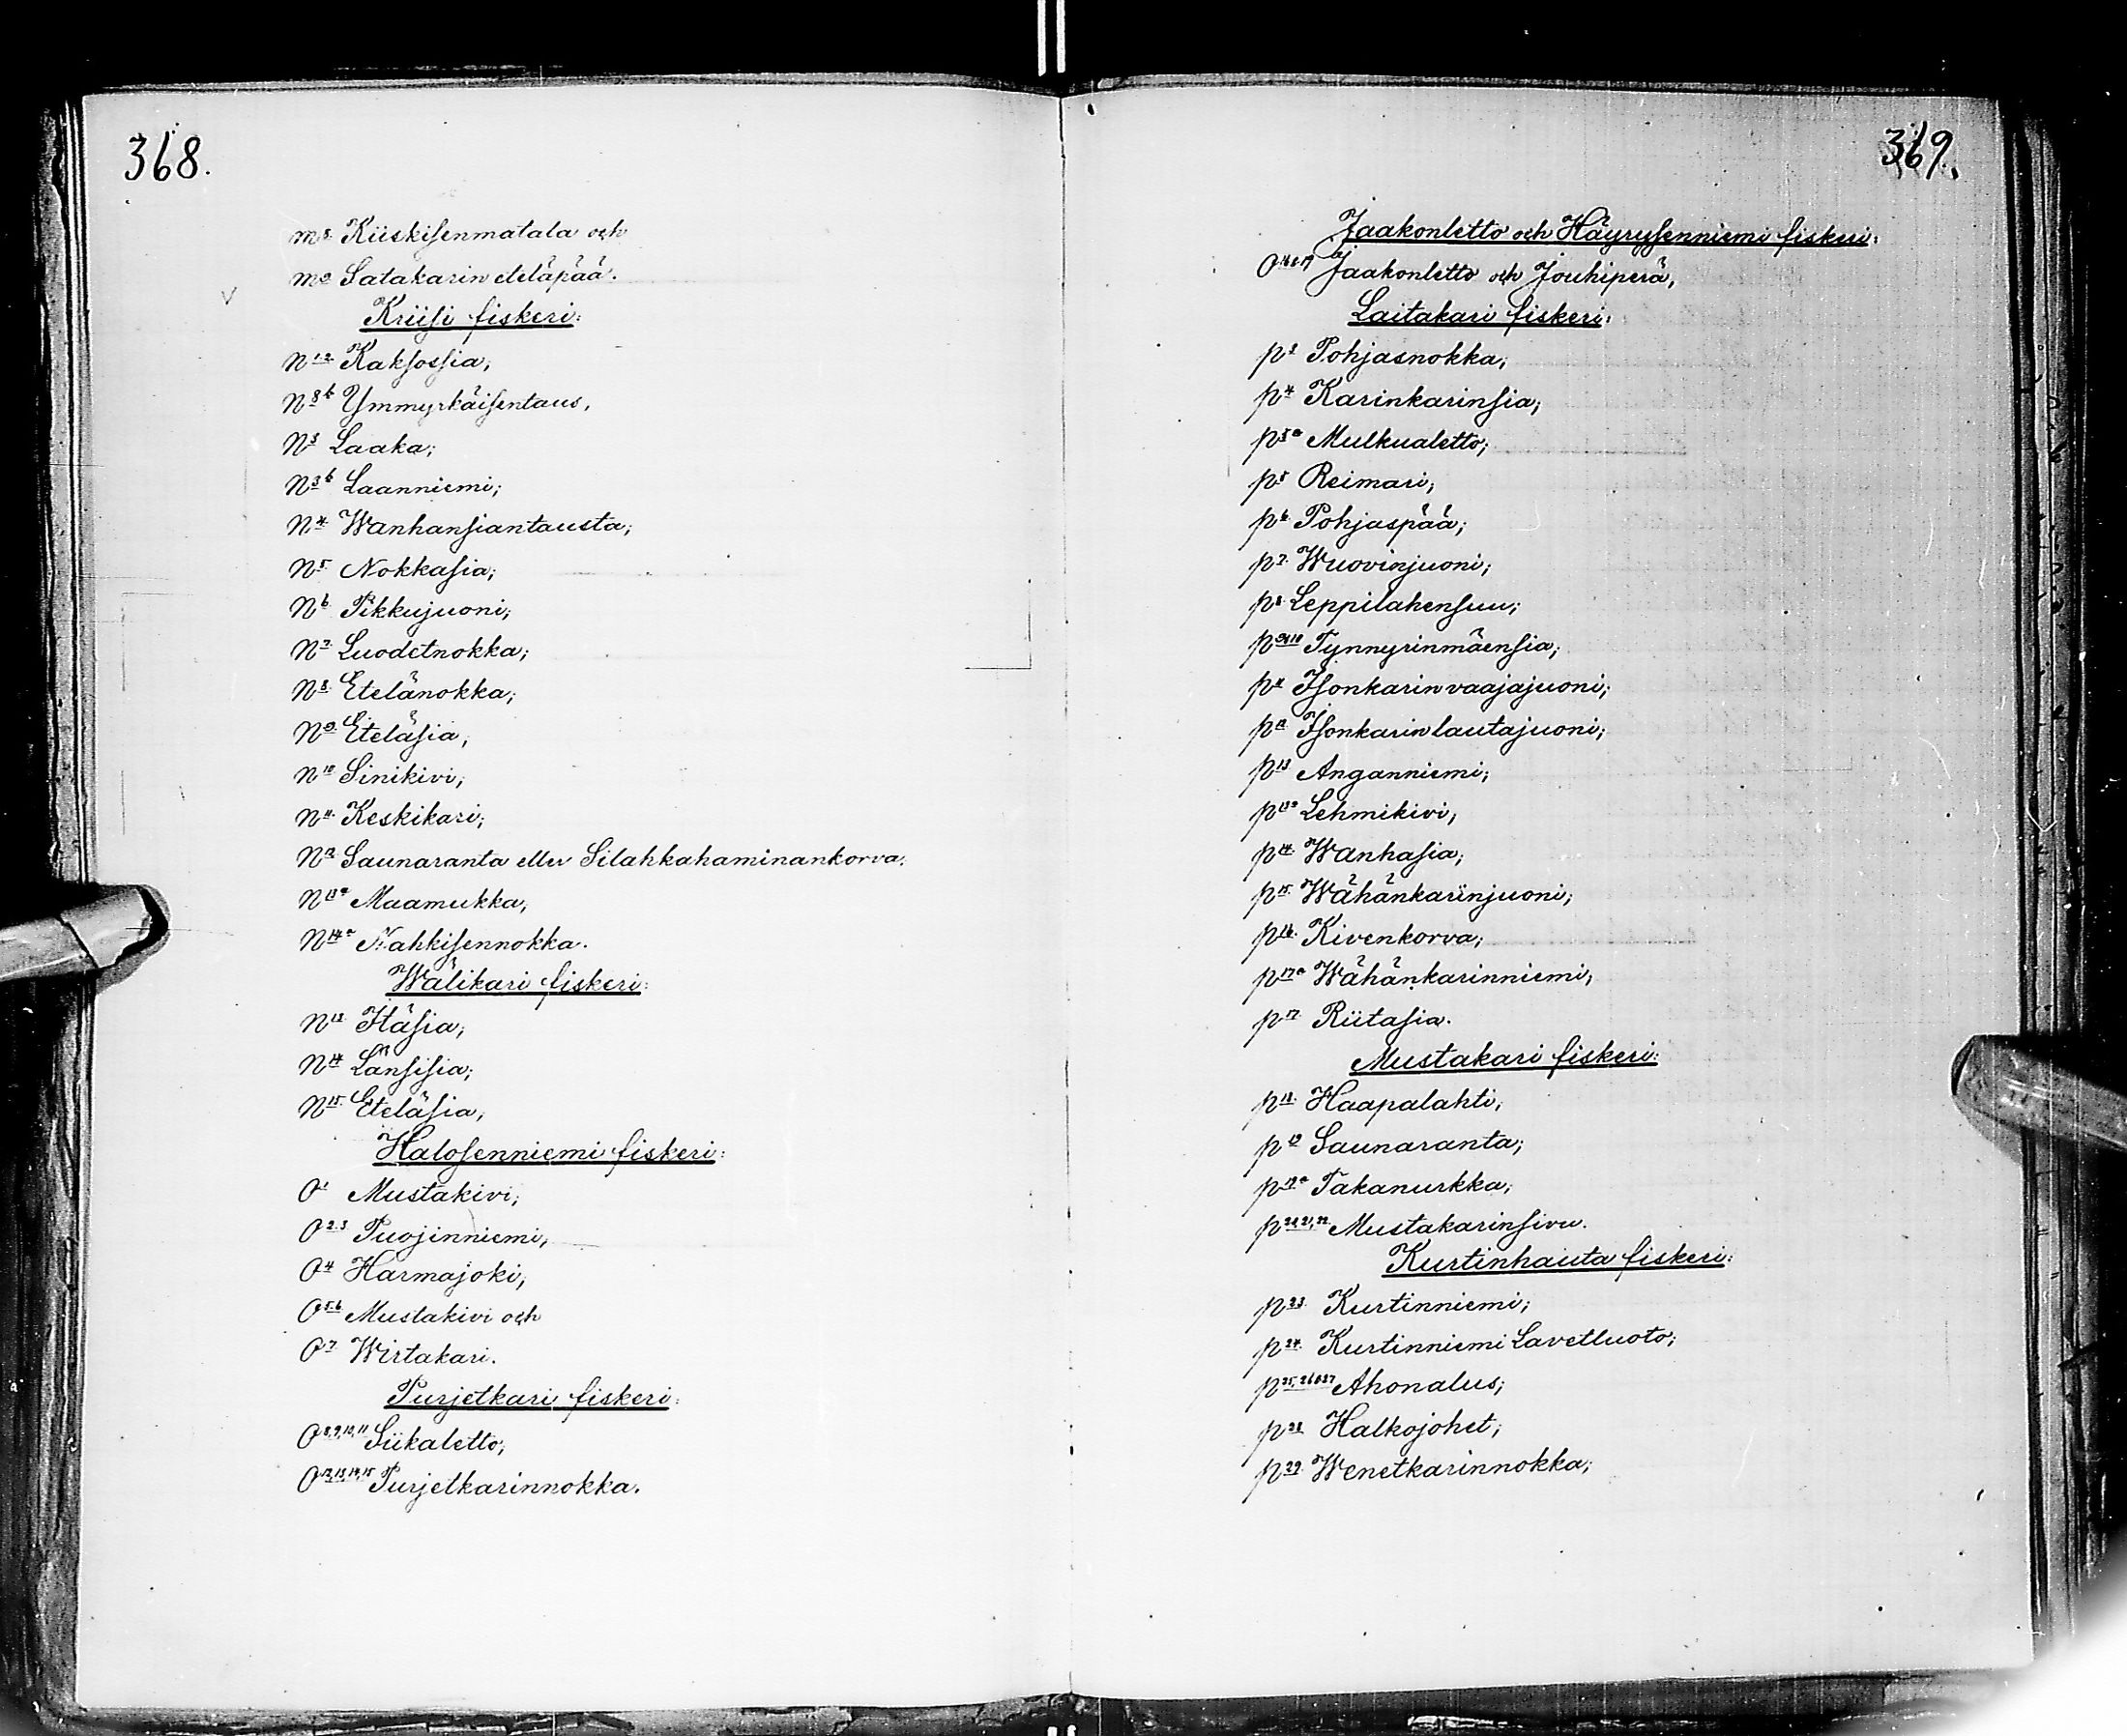 368.
m⁸ Kiiskisenmatala och
m⁹ Satakarin eteläpää.
Kriisi fiskeri:
N¹·² Kaksossia;
N³ᵇ Ymmyrkäisentaus,
N³ Laaka;
N³ᵇ Laanniemi;
N⁴ Wanhansiantausta;
N⁵ Nokkasia;
N⁶ Pikkujuoni;
N⁷ Luodetnokka;
N⁸ Etelänokka;
N⁹ Eteläsia;
N¹⁰ Sinikivi;
N¹¹ Keskikari;
N¹² Saunaranta eller Silahkahaminankorva.
N¹³ᵃ Maamukka;
N¹⁴ᵃ Nahkisennokka.
Wälikari fiskeri:
N¹³ Itäsia;
N¹⁴ Länsisia;
N¹⁵ Eteläsia;
Halosenniemi fiskeri:
O¹ Mustakivi;
O²·³ Puojinniemi;
O⁴ Harmajoki;
O⁵·⁶ Mustakivi och
O⁷ Wirtakari.
Purjetkari fiskeri:
O⁸,⁹,¹⁰,¹¹ Siikaletto;
O¹²,¹³,¹⁴,¹⁵ Purjetkarinnokka.
369.
Jaakonletto och Häyrysenniemi fiskeri:
O¹⁶ᵒ¹⁷ Jaakonletto och Jouhiperä,
Laitakari fiskeri:
p² Pohjasnokka;
p⁴ Karinkarinsia;
p⁵ᵃ Mulkualetto;
p⁵ Reimari;
p⁶ Pohjaspää;
p⁷ Wuovinjuoni;
p⁸ Leppilahensuu;
p⁹ᵒ¹⁰ Tynnyrinmäensia;
p¹¹ Isonkarinvaajajuoni;
p¹² Isonkarinlautajuoni;
p¹³ Anganniemi;
p¹³ᵃ Lehmikivi;
p¹⁴ Wanhasia;
p¹⁵ Wähänkarinjuoni;
p¹⁶ Kivenkorva;
p¹⁷ᵃ Wähänkarinniemi;
p¹⁷ Riitasia.
Mustakari fiskeri:
p¹⁸ Haapalahti;
p¹⁹ Saunaranta;
p¹⁹ᵃ Takanurkka;
p²⁰,²¹,²² Mustakarinsivu.
Kurtinhauta fiskeri:
p²³ Kurtinniemi;
p²⁴ Kurtinniemi Lavetluoto;
p²⁵,²⁶ᵒ²⁷ Ahonalus;
p²⁸ Halkojohet;
p²⁹ Wenetkarinnokka;